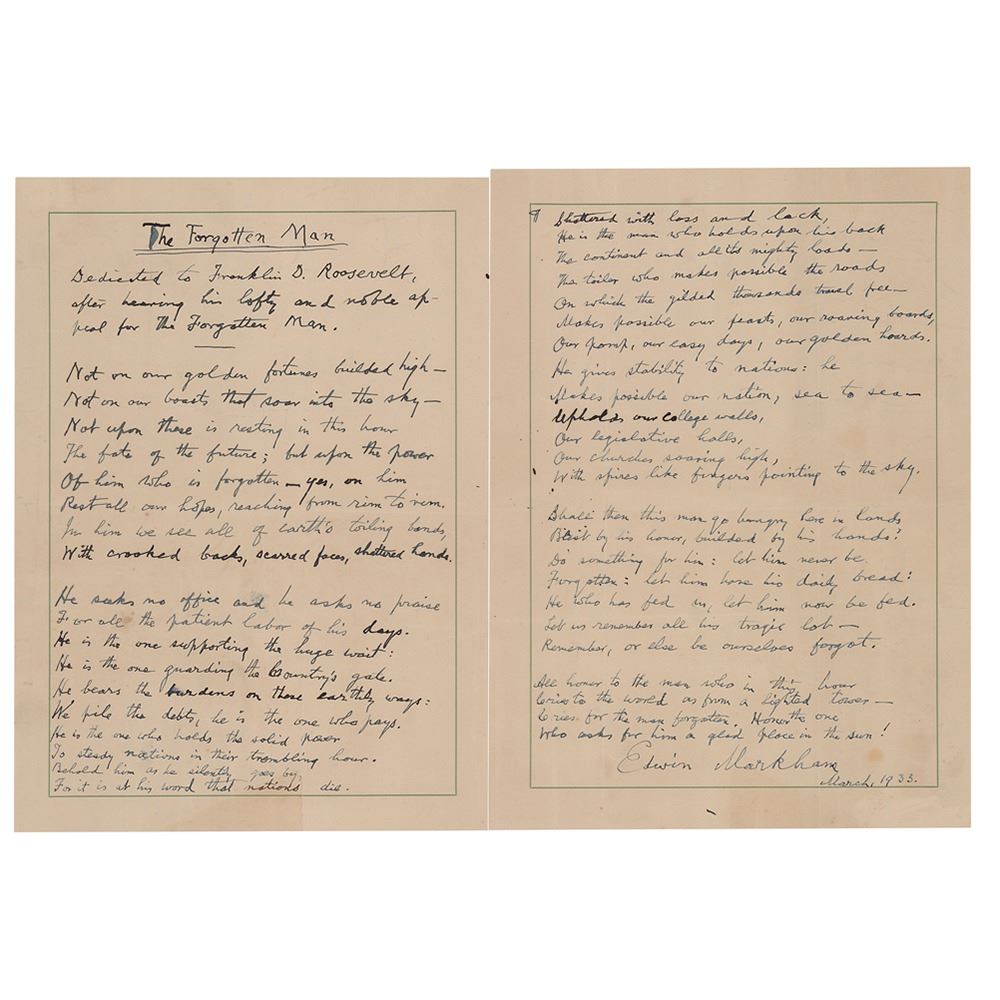 The Forgotten Man
Dedicated to Franklin D. Roosevelt,
after hearing his lofty and noble ap-
peal for the Forgotten Man.
Not on our golden fortunes builded high—
Not on our boasts that soar into the sky—
Not upon these is resting in this hour
The fate of the future; but upon the power
Of him who is forgotten — yes, on him
Rest all our hopes, reaching from rim to rim.
In him we see all of earth's toiling bands,
With crooked backs, scarred faces, shattered hands.
He seeks no office and he asks no praise
For all the patient labor of his days.
He is the one supporting the huge weight:
He is the one guarding the Country's gate.
He bears the burdens on these earthly ways:
We pile the debts, he is the one who pays.
He is the one who holds the solid power
To steady nations in their trembling hour.
Behold him as he silently goes by,
For it is at his word that nations die.
¶ Shattered with loss and lack,
He is the man who holds upon his back
The continent and all its mighty loads—
The toiler who makes possible the roads
On which the gilded thousands travel free—
Makes possible our feasts, our roaring boards,
Our pomp, our easy days, our golden hoards.
He gives stability to nations: he
Makes possible our nation, sea to sea—
Upholds our college walls,
Our legislative halls,
Our churches soaring high,
With spires like fingers pointing to the sky.
Shall then this man go hungry here in lands
Blest by his honor, builded by his hands?
Do something for him: let him never be
Forgotten: let him have his daily bread:
He who has fed us, let him now be fed.
Let us remember all his tragic lot—
Remember, or else be ourselves forgot.
All honor to the man who in this hour
Cries to the world as from a lighted tower—
Cries for the man forgotten. Honor the one
Who asks for him a glad place in the sun!
Edwin Markham
March, 1933.